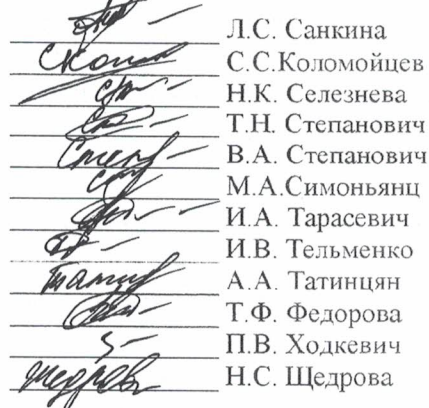 Л.С. Санкина
С.С.Коломойцев
Н.К. Селезнева
Т.Н. Степанович
В.А. Степанович
М.А.Симоньянц
И.А. Тарасевич
И.В. Тельменко
А.А. Татинцян
Т.Ф. Федорова
П.В. Ходкевич
Н.С. Щедрова